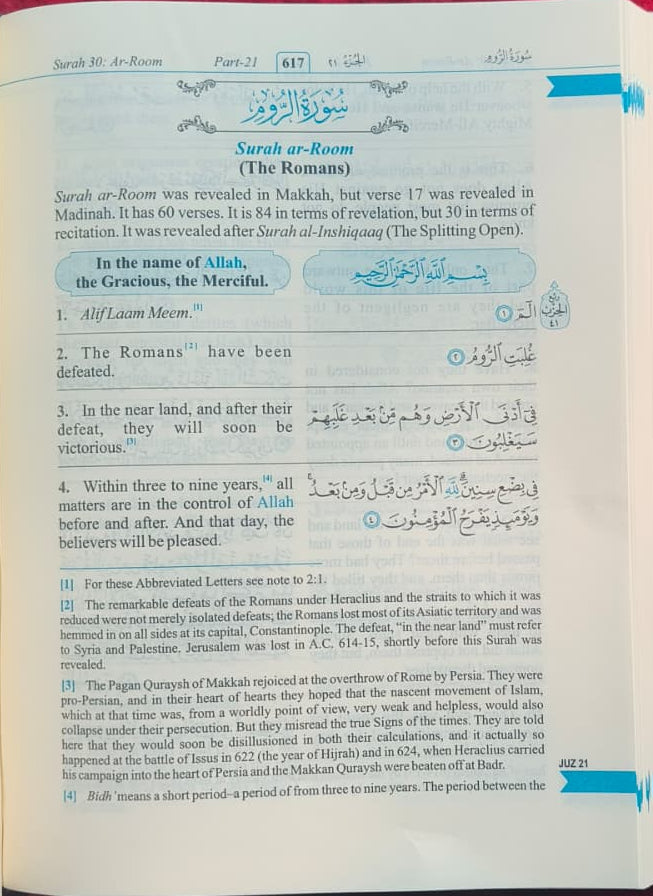 Surah 30: Ar-Room Part-21 617 الجزء ٢١ سورة الروم
سُورَةُ الرُّومِ
Surah ar-Room
(The Romans)
Surah ar-Room was revealed in Makkah, but verse 17 was revealed in
Madinah. It has 60 verses. It is 84 in terms of revelation, but 30 in terms of
recitation. It was revealed after Surah al-Inshiqaaq (The Splitting Open).
In the name of Allah,
the Gracious, the Merciful.
بِسْمِ اللَّهِ الرَّحْمَٰنِ الرَّحِيمِ
1. Alif Laam Meem.[1]
الٓمٓ ١
ربع
الحزب
٤١
2. The Romans[2] have been
defeated.
غُلِبَتِ الرُّومُ ٢
3. In the near land, and after their
defeat, they will soon be
victorious.[3]
فِىٓ أَدْنَى الْأَرْضِ وَهُم مِّنۢ بَعْدِ غَلَبِهِمْ
سَيَغْلِبُونَ ٣
4. Within three to nine years,[4] all
matters are in the control of Allah
before and after. And that day, the
believers will be pleased.
فِى بِضْعِ سِنِينَ ۗ لِلَّهِ الْأَمْرُ مِن قَبْلُ وَمِنۢ بَعْدُ ۚ
وَيَوْمَئِذٍ يَفْرَحُ الْمُؤْمِنُونَ ٤
[1] For these Abbreviated Letters see note to 2:1.
[2] The remarkable defeats of the Romans under Heraclius and the straits to which it was
reduced were not merely isolated defeats; the Romans lost most of its Asiatic territory and was
hemmed in on all sides at its capital, Constantinople. The defeat, “in the near land” must refer
to Syria and Palestine. Jerusalem was lost in A.C. 614-15, shortly before this Surah was
revealed.
[3] The Pagan Quraysh of Makkah rejoiced at the overthrow of Rome by Persia. They were
pro-Persian, and in their heart of hearts they hoped that the nascent movement of Islam,
which at that time was, from a worldly point of view, very weak and helpless, would also
collapse under their persecution. But they misread the true Signs of the times. They are told
here that they would soon be disillusioned in both their calculations, and it actually so
happened at the battle of Issus in 622 (the year of Hijrah) and in 624, when Heraclius carried
his campaign into the heart of Persia and the Makkan Quraysh were beaten off at Badr.
JUZ 21
[4] Bidh 'means a short period–a period of from three to nine years. The period between the